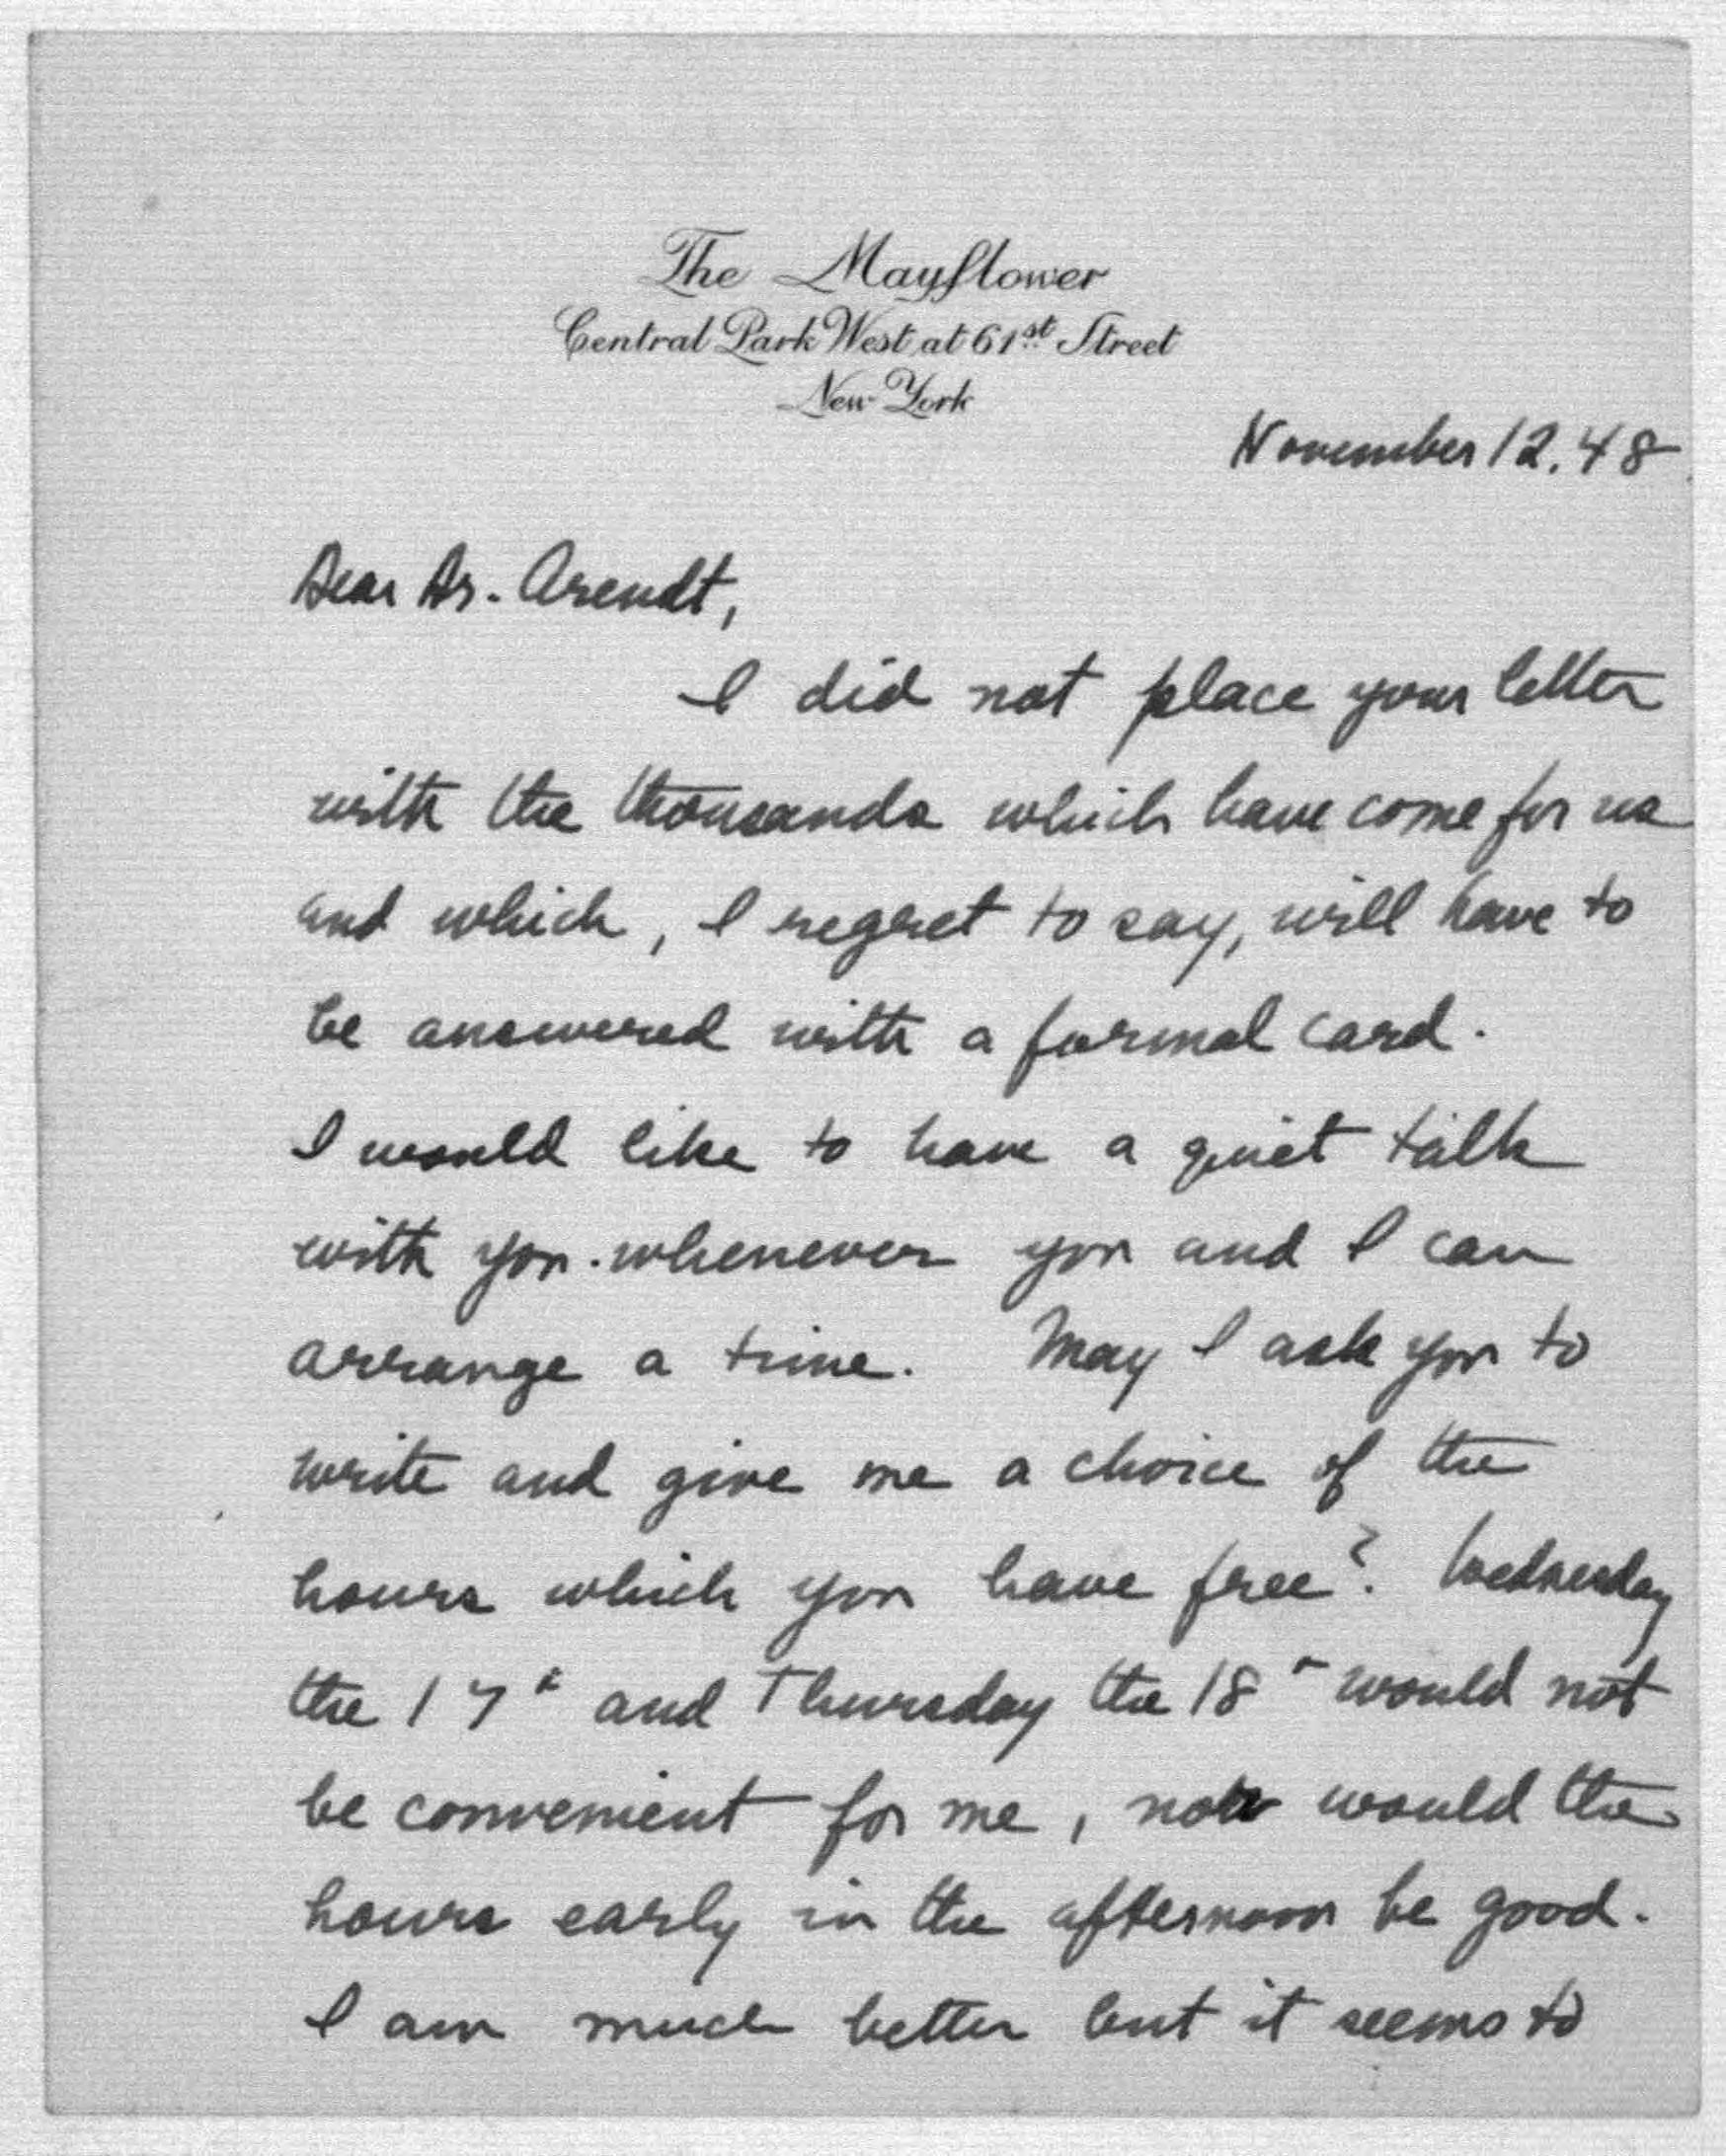 The Mayflower
Central Park West at 61st Street
New York
November 12. 48
Dear Dr. Arendt,
I did not place your letter
with the thousands which have come for us
and which, I regret to say, will have to
be answered with a formal card.
I would like to have a quiet talk
with you. whenever you and I can
arrange a time. May I ask you to
write and give me a choice of the
hours which you have free? Wednesday
the 17th and Thursday the 18th would not
be convenient for me, nor would the
hours early in the afternoon be good.
I am much better but it seems to